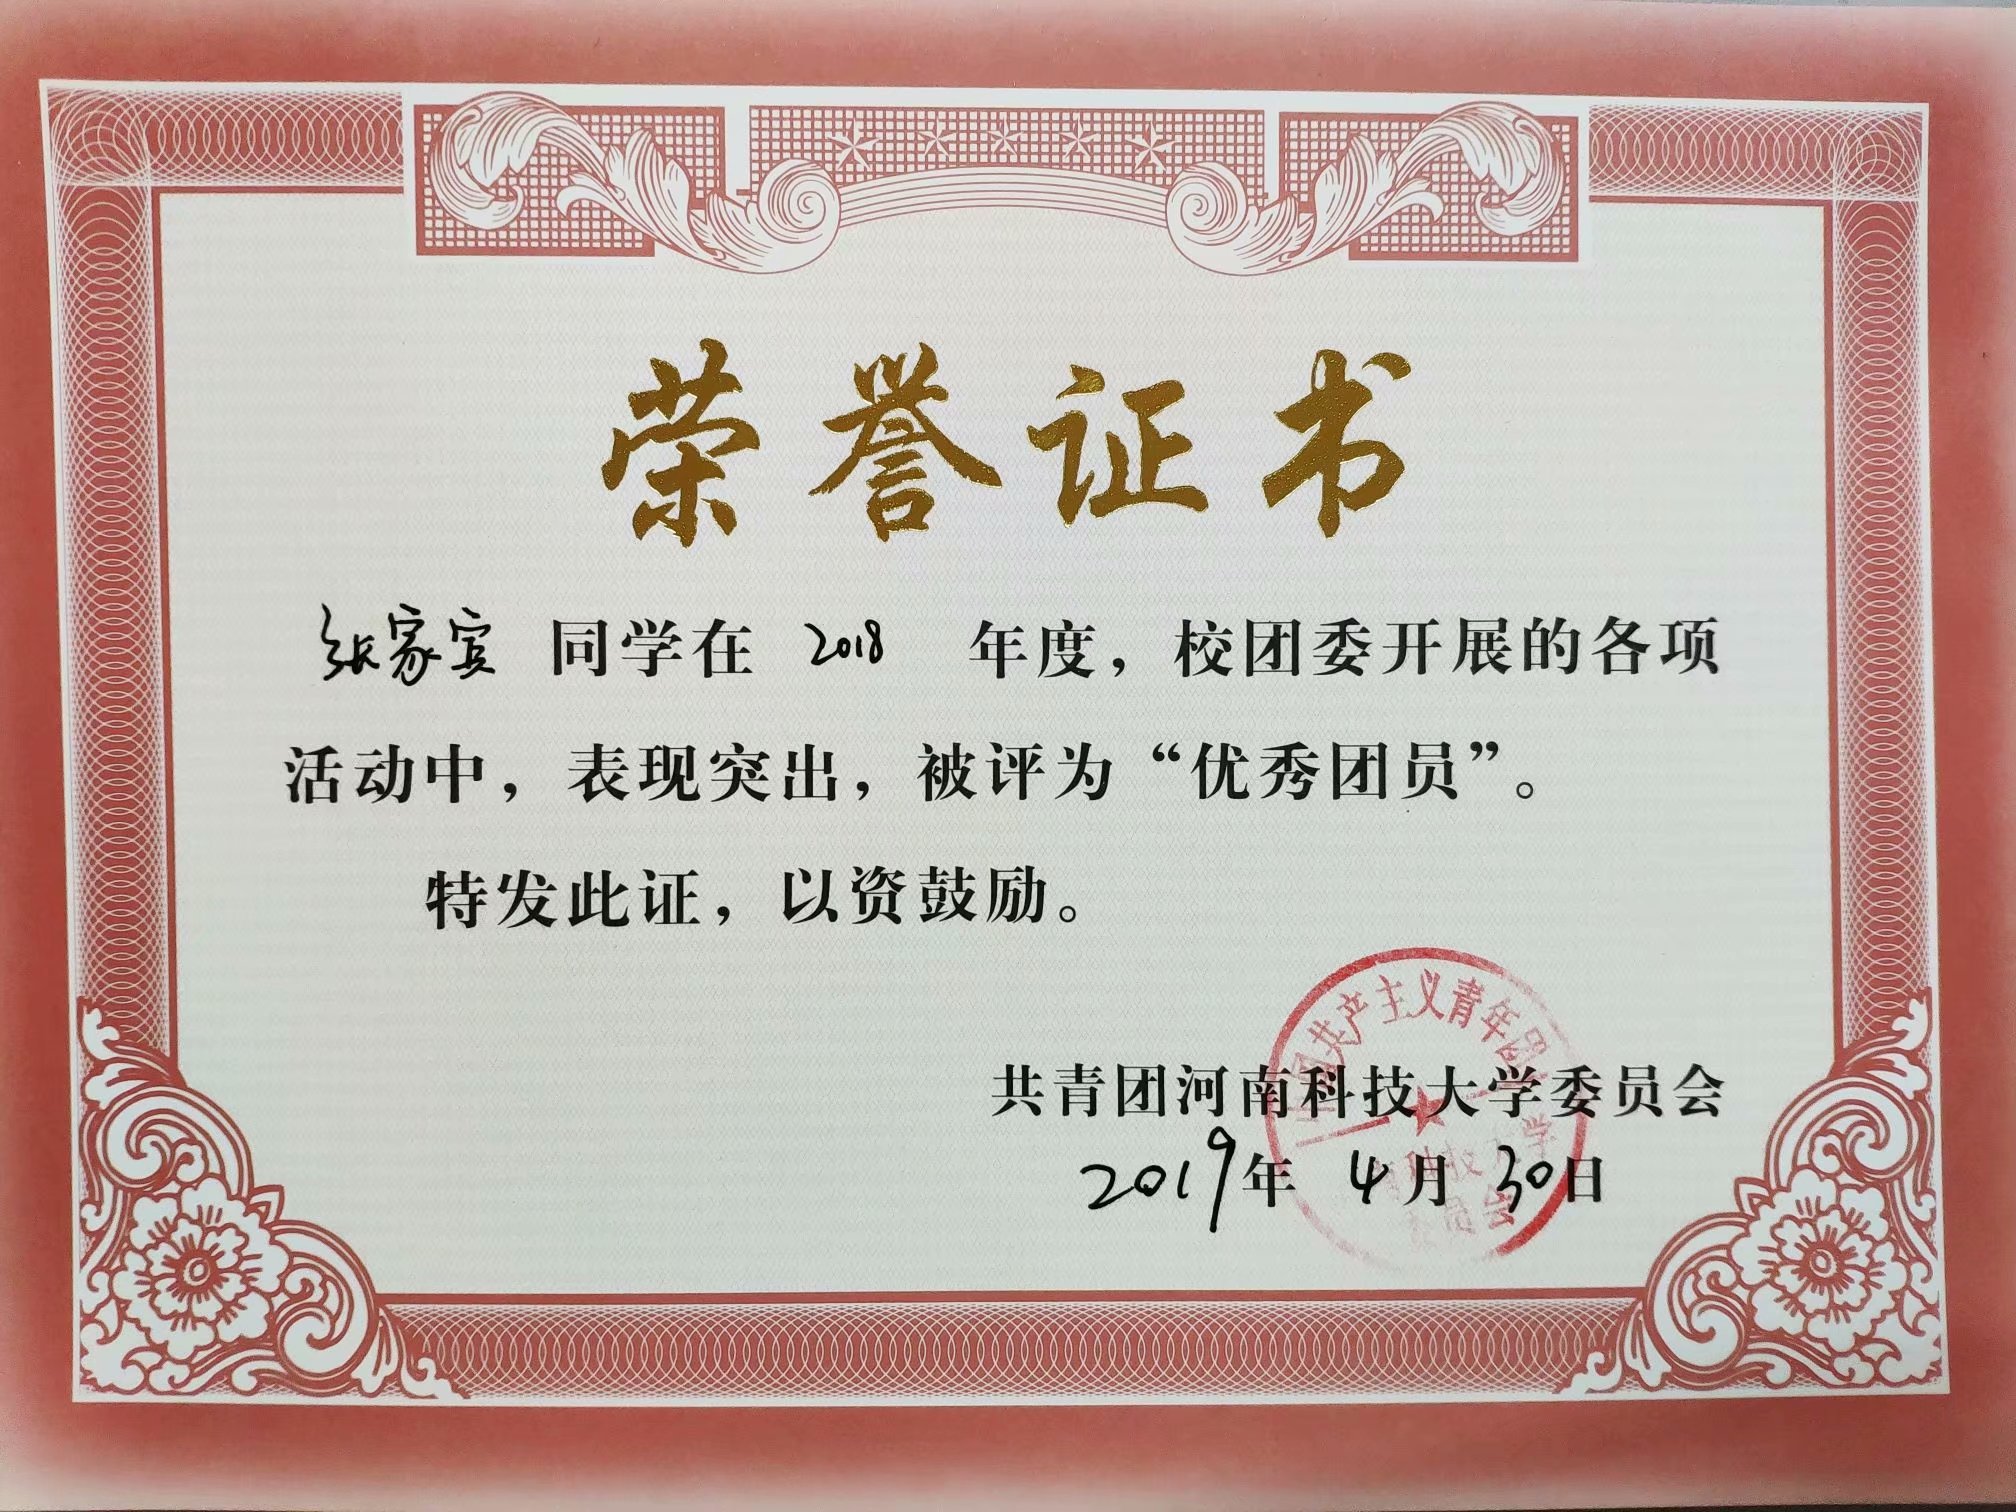 荣誉证书
张家宾 同学在 2018 年度，校团委开展的各项
活动中，表现突出，被评为“优秀团员”。
特发此证，以资鼓励。
共青团河南科技大学委员会
2019年 4月 30日
国共产主义青年团
科技大学
委员会